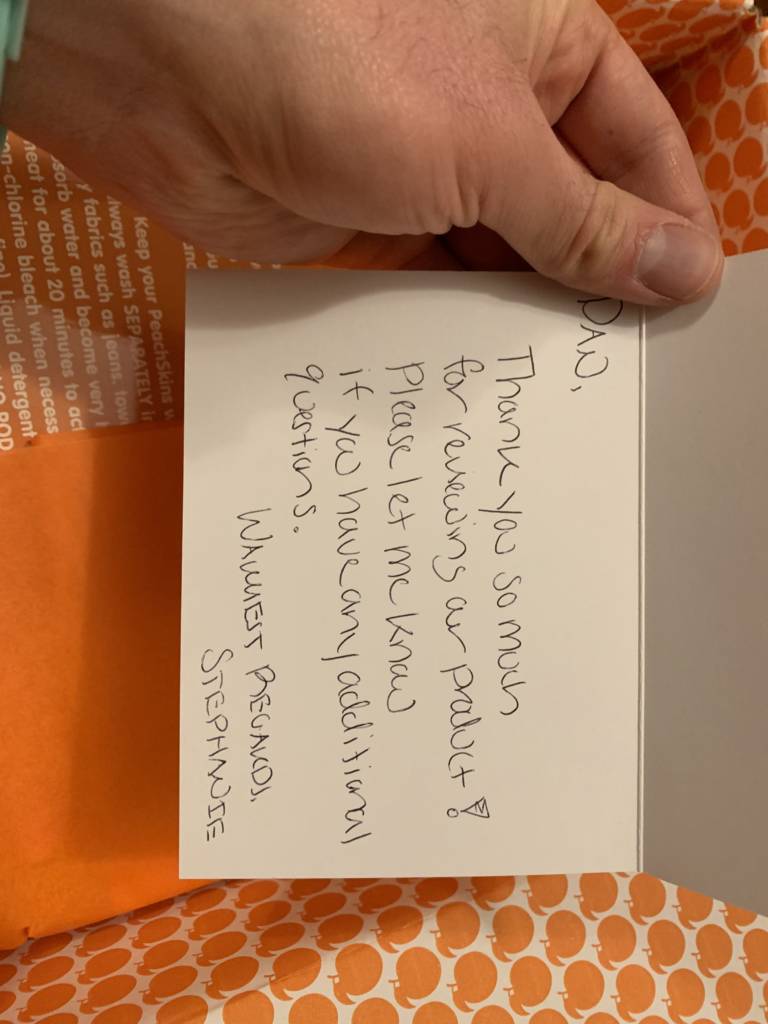 DAN,
Thank you so much
for reviewing our product!
Please let me know
if you have any additional
questions.
WARMEST REGARDS,
STEPHANIE
Keep your PeachSkins
Always wash SEPARATELY
fabrics such as jeans,
sorb water and become very
heat for about 20 minutes to
non-chlorine bleach when
Liquid detergent